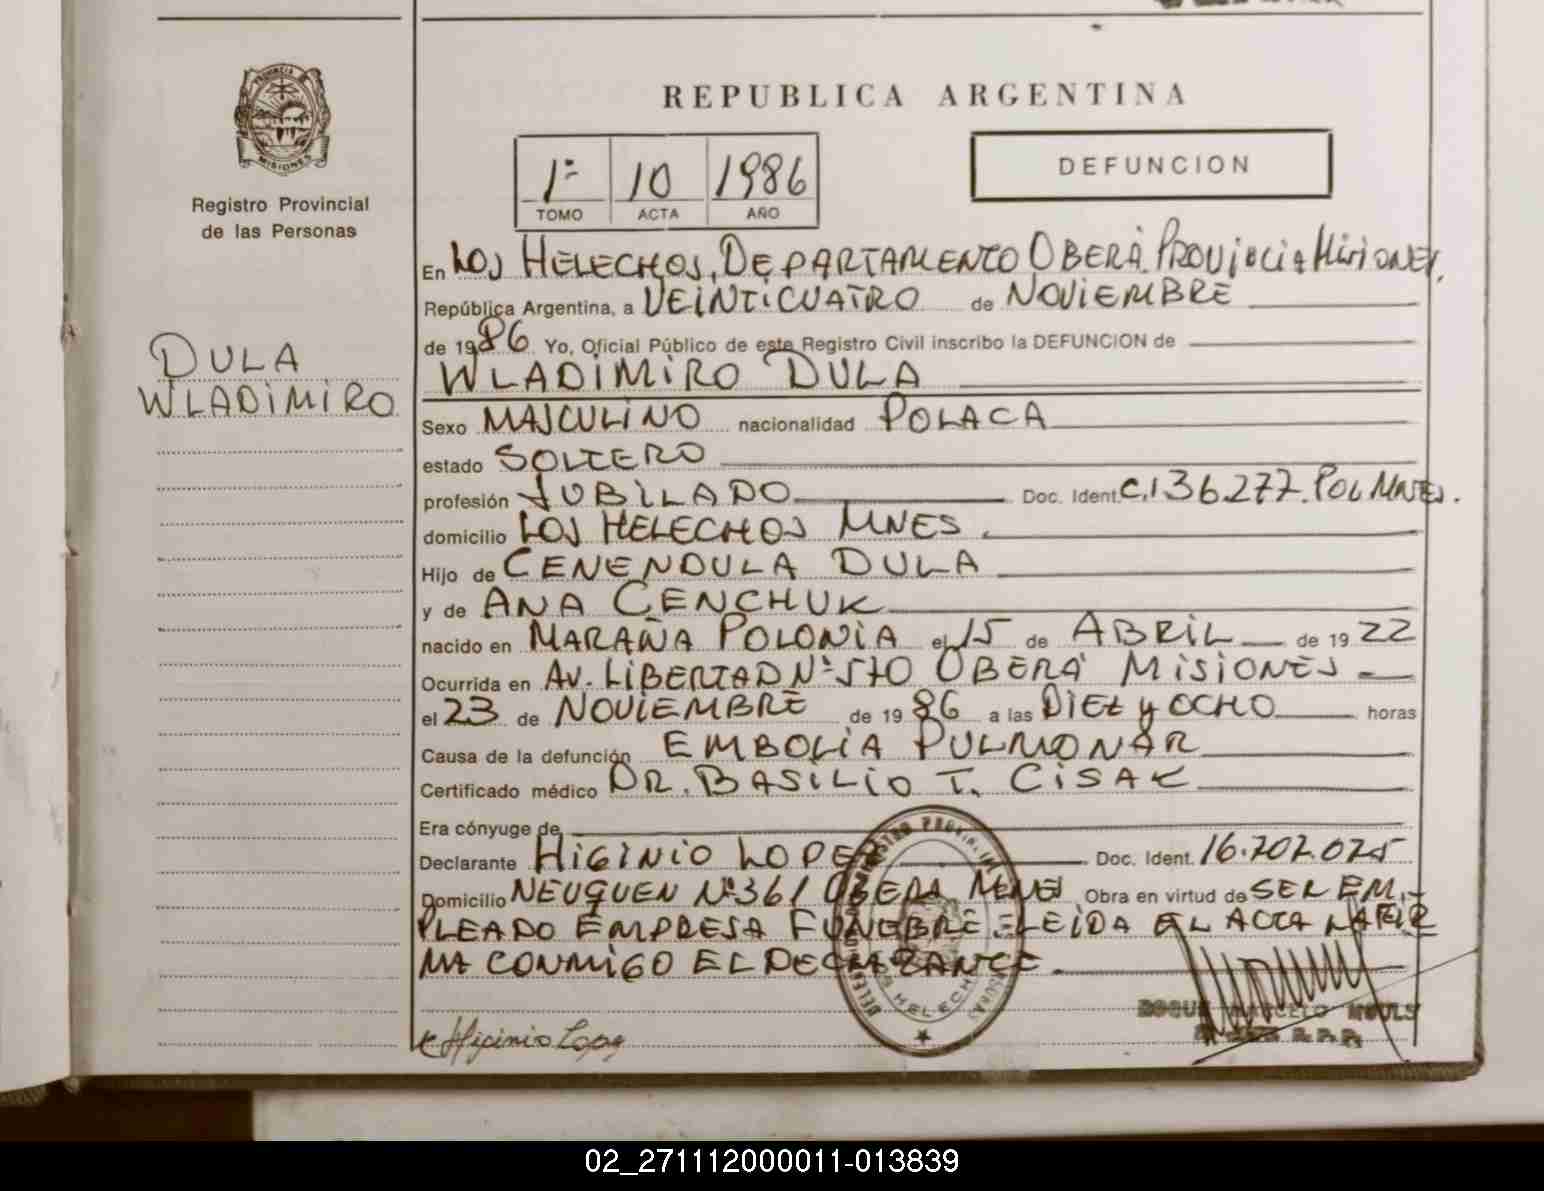 REPUBLICA ARGENTINA
PROVINCIA DE
MISIONES
Registro Provincial
de las Personas
1º 10 1986
TOMO ACTA AÑO
DEFUNCION
DULA
WLADIMIRO
En LOS HELECHOS, DEPARTAMENTO OBERÁ PROVINCIA MISIONES,
República Argentina, a VEINTICUATRO de NOVIEMBRE
de 1986 Yo, Oficial Público de este Registro Civil inscribo la DEFUNCION de
WLADIMIRO DULA
Sexo MASCULINO nacionalidad POLACA
estado SOLTERO
profesión JUBILADO Doc. Ident. C.I 36.277. POL MNES.
domicilio LOS HELECHOS MNES
Hijo de CENENDULA DULA
y de ANA CENCHUK
nacido en MARAÑA POLONIA el 15 de ABRIL de 1922
Ocurrida en AV. LIBERTAD Nº 570 OBERÁ MISIONES
el 23 de NOVIEMBRE de 1986 a las DIEZ y OCHO horas
Causa de la defunción EMBOLIA PULMONAR
Certificado médico DR. BASILIO T. CISAK
Era cónyuge de
Declarante HIGINIO LOPEZ Doc. Ident. 16.202.025
Domicilio NEUQUEN Nº 361 OBERA MNES Obra en virtud de SER EM-
PLEADO EMPRESA FUNEBRE LEIDA EL ACTA LA FIR
MA CONMIGO EL DECLARANTE
Higinio Lopez
ROQUE MARCELO
02_271112000011-013839